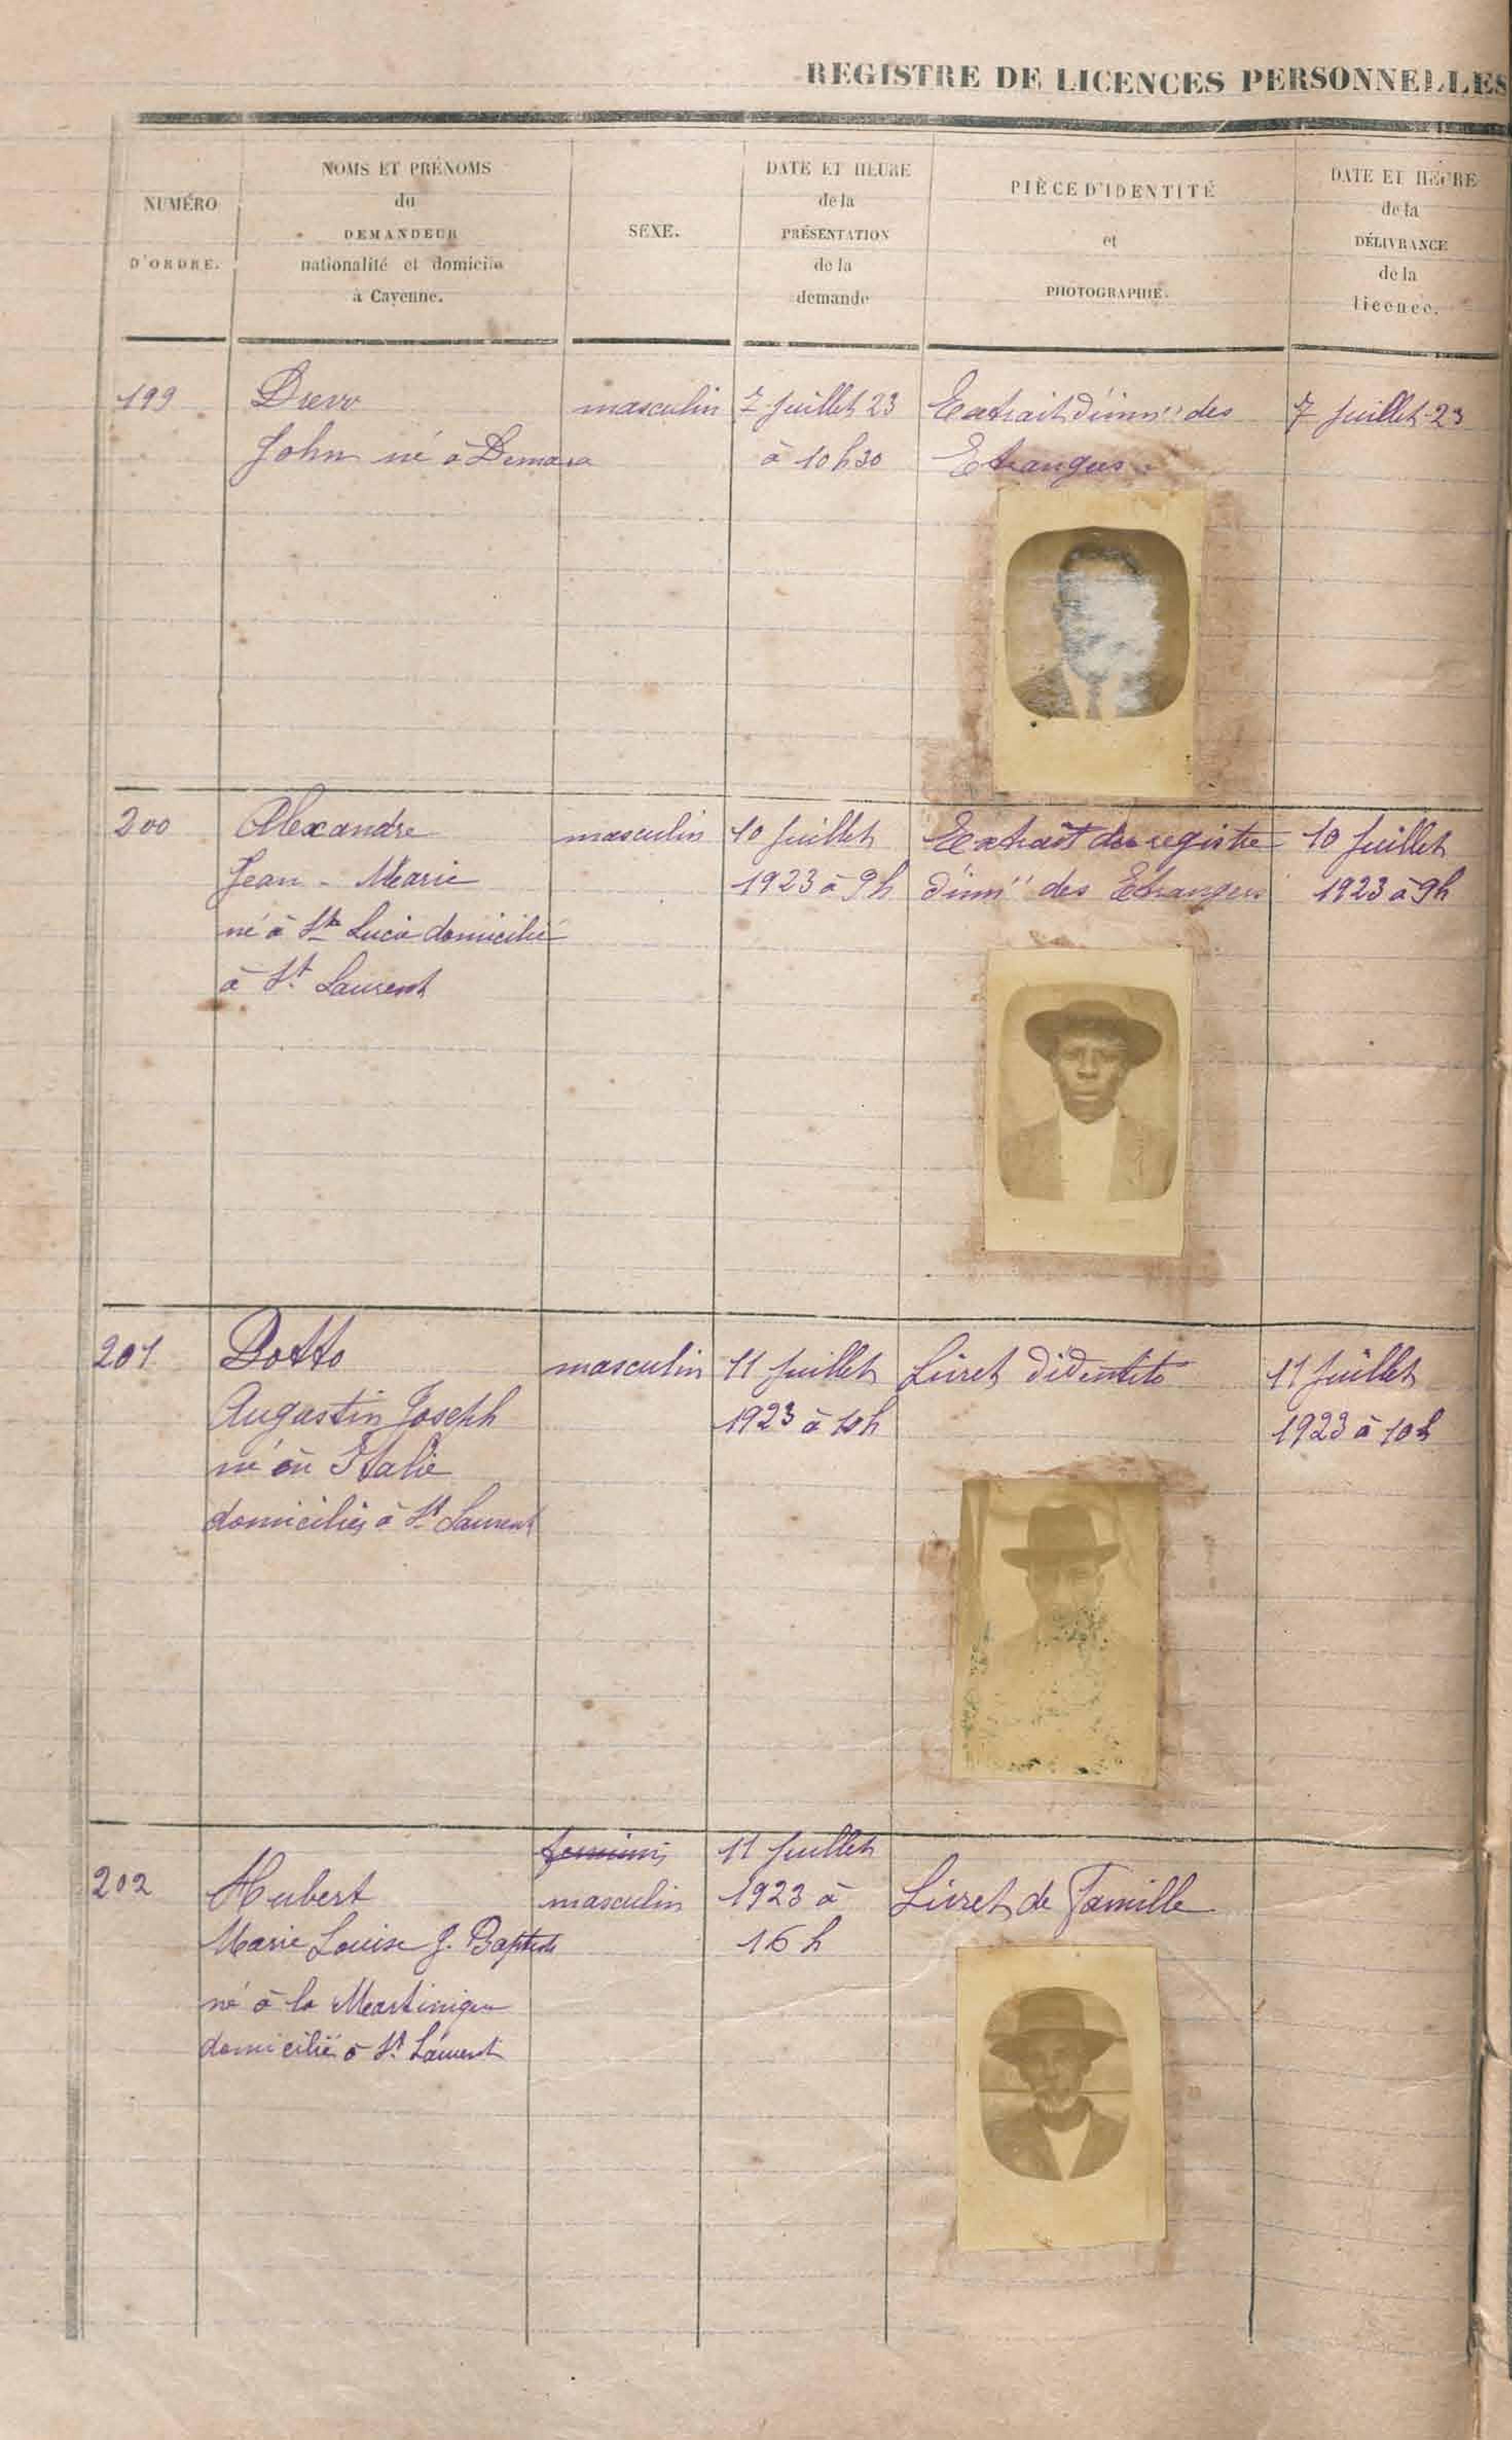 REGISTRE DE LICENCES PERSONNELLES
NUMÉRO
D'ORDRE.
NOMS ET PRÉNOMS
du
DEMANDEUR
nationalité et domicile
à Cayenne.
SEXE.
DATE ET HEURE
de la
PRÉSENTATION
de la
demande
PIÈCE D'IDENTITÉ
et
PHOTOGRAPHIE.
DATE ET HEURE
de la
DÉLIVRANCE
de la
licence.
199
John né à
masculin
7 Juillet 23
à 10 h 30
Extrait d'imm'' des
Etrangers
7 Juillet-23
200
Alexandre
Jean - Marie
né à Ste Lucie domicilié
à St. Laurent
masculin
10 Juillet
1923 à 9h
Extrait du registre
d'imm'' des Etrangers
10 Juillet
1923 à 9h
201
Dotto
Augustin Joseph
né en Italie
domicilié à St Laurent
masculin
11 Juillet
1923 à 10h
Livret d'identité
11 Juillet
1923 à 10h
202
Hubert
Marie Louise J. Baptiste
né à la Martinique
domicilié à St Laurent
masculin
11 Juillet
1923 à
16 h
Livret de Famille